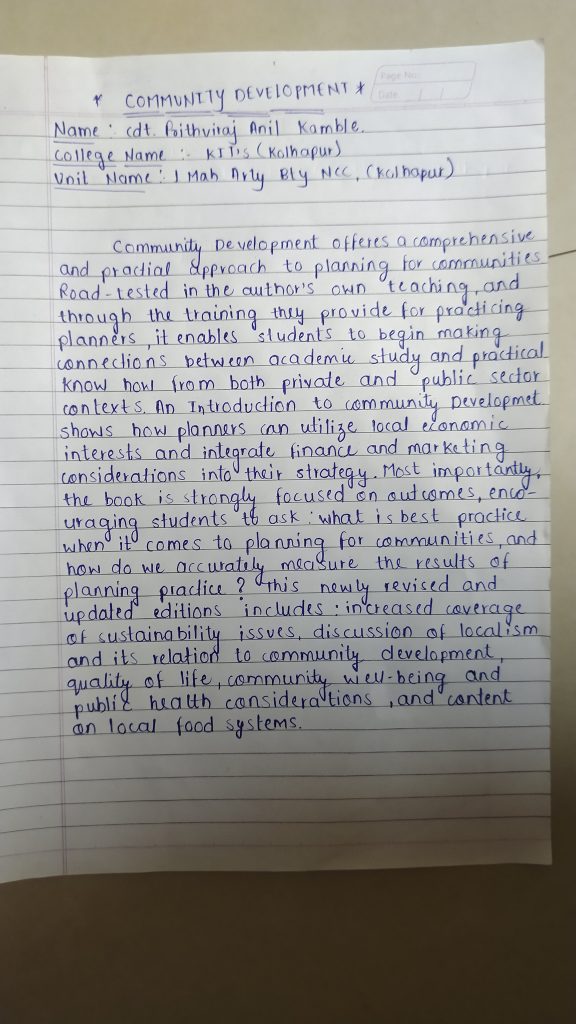 * COMMUNITY DEVELOPMENT *
Page No:
Date / /
Name : cdt. Prithviraj Anil Kamble.
College Name :- KIT's (Kolhapur)
Unit Name : 1 Mah Arty Bty NCC, (Kolhapur)
Community Development offeres a comprehensive
and practial approach to planning for communities
Road-tested in the author's own teaching, and
through the training they provide for practicing
planners, it enables students to begin making
connections between academic study and practical
know how from both private and public sector
contexts. An Introduction to community Developmet
shows how planners can utilize local economic
interests and integrate finance and marketing
considerations into their strategy. Most importantly,
the book is strongly focused on outcomes, enco-
uraging students to ask : what is best practice
when it comes to planning for communities, and
how do we accurately measure the results of
planning practice ? this newly revised and
updated editions includes : increased coverage
of sustainability issues, discussion of localism
and its relation to community development,
quality of life, community well-being and
public health considerations , and content
on local food systems.